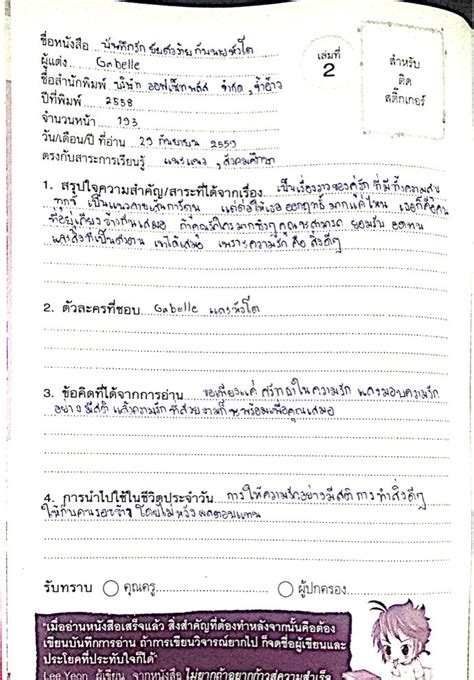 ชื่อหนังสือ บันทึกรัก ยัยตัวร้าย กับนายหัวโต
ผู้แต่ง Gabelle
ชื่อสำนักพิมพ์ บริษัท ออฟเซ็ทพลัส จำกัด
ปีที่พิมพ์ 2558
จำนวนหน้า 193
วัน/เดือน/ปี ที่อ่าน 29 กันยายน 2559
ตรงกับสาระการเรียนรู้ แนะแนว , สังคมศึกษา
เล่มที่
2
สำหรับ
ติด
สติ๊กเกอร์
1. สรุปใจความสำคัญ/สาระที่ได้จากเรื่อง เป็นเรื่องราวของคู่รัก ที่มีทั้งความสุข
ทุกข์ เป็นแนวลายเส้นการ์ตูน แต่ต่อให้เธอ ออกฤทธิ์ มากแค่ไหน เธอก็คือคน
ที่อยู่เคียงข้างกันเสมอ ถ้าคุณรักใครมากจริงๆ คุณจะสามารถ ยอมรับ อดทน
และสิ่งที่เป็นตัวตน เขาได้เสมอ เพราะความรัก คือ สิ่งดีๆ
2. ตัวละครที่ชอบ Gabelle และหัวโต
3. ข้อคิดที่ได้จากการอ่าน ขอเพียงแค่ ศรัทธาในความรัก และมอบความรัก
อย่างมีสติ แล้วความรัก ที่สวยงามก็จะพร้อมเพื่อคุณเสมอ
4. การนำไปใช้ในชีวิตประจำวัน การให้ความรักอย่างมีสติ การทำสิ่งดีๆ
ให้กับคนรอบข้าง โดยไม่หวังผลตอบแทน
รับทราบ คุณครู ผู้ปกครอง
"เมื่ออ่านหนังสือเสร็จแล้ว สิ่งสำคัญที่ต้องทำหลังจากนั้นคือต้อง
เขียนบันทึกการอ่าน ถ้าการเขียนวิจารณ์ยากไป ก็จดชื่อผู้เขียนและ
ประโยคที่ประทับใจก็ได้"
Lee Yeon ผู้เขียน จากหนังสือ ไม่ยากถ้าอยากก้าวสู่ความสำเร็จ